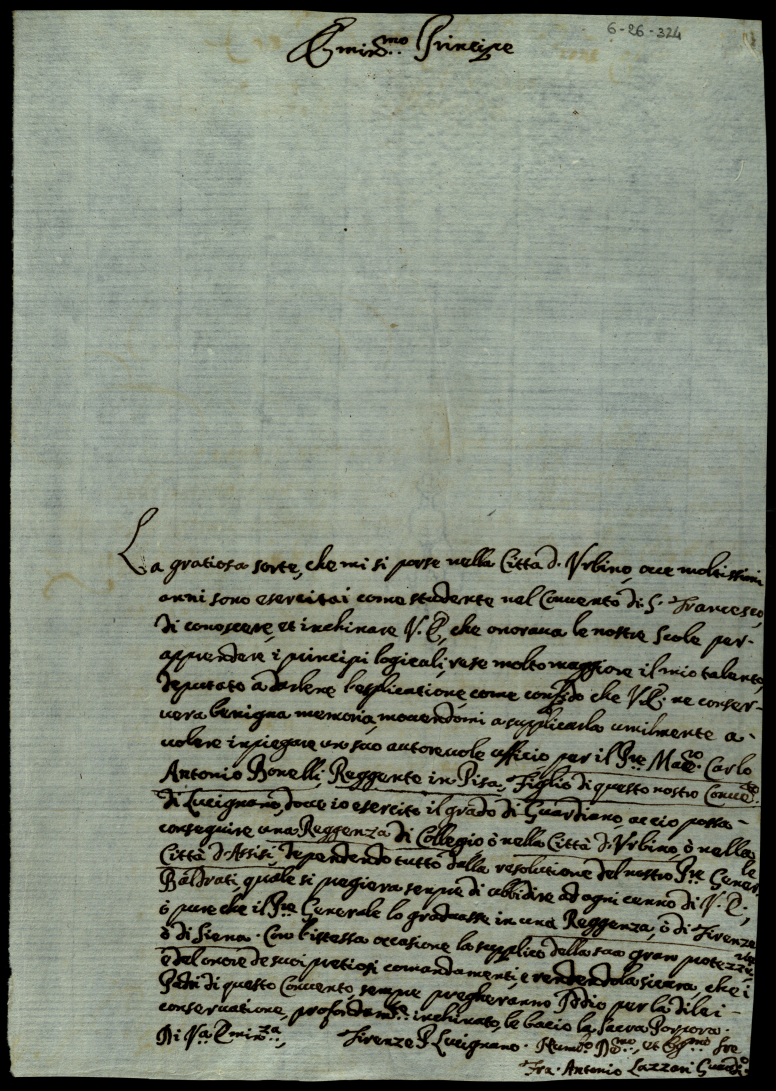 6-26-324
Emin.mo Principe
La gratiosa sorte, che mi si porse nella Città d'Urbino, oue moltissimi
anni sono esercitai come studente nel Conuento di S. Francesco,
di conoscere, et inchinare V. E., che onoraua le nostre scole per
apprendere i principi logicali, rese molto maggiore il mio talento,
deputato a darlene l'esplicatione, come confido che V. E. ne conser-
uerà benigna memoria, mouendomi a supplicarla umilmente a
uolere inpiegare un suo autoreuole ufficio per il Pre Maero Carlo
Antonio Bonelli, Reggente in Pisa, Figlio di questo nostro Conuto
di Lucignano, doue io esercito il grado di Guardiano acciò possa
conseguire una Reggenza di Collegio ò nella Città d'Urbino, ò nella
Città d'Assisi, dependendo tutto dalla resolutione del nostro Pre Generle
Baldrati, quale si pregierà sempre di ubbidire ad ogni cenno di V. E.,
ò pure che il Pre Generale lo graduasse in una Reggenza, ò di Firenze
ò di Siena. Con l'istessa occasione la supplico della sua gran
e del onore de suoi pretiosi comandamenti, e rendendola sicura, che i
Padri di questo Conuento sempre pregheranno Iddio per la di lei
conseruatione, profondamte inchinato, le bacio la sacra Porpora.
Di Va Eminza, Firenze P. Lucignano. Humo Dmo, et Obgmo Sre
Fra Antonio Lazzari Guardno